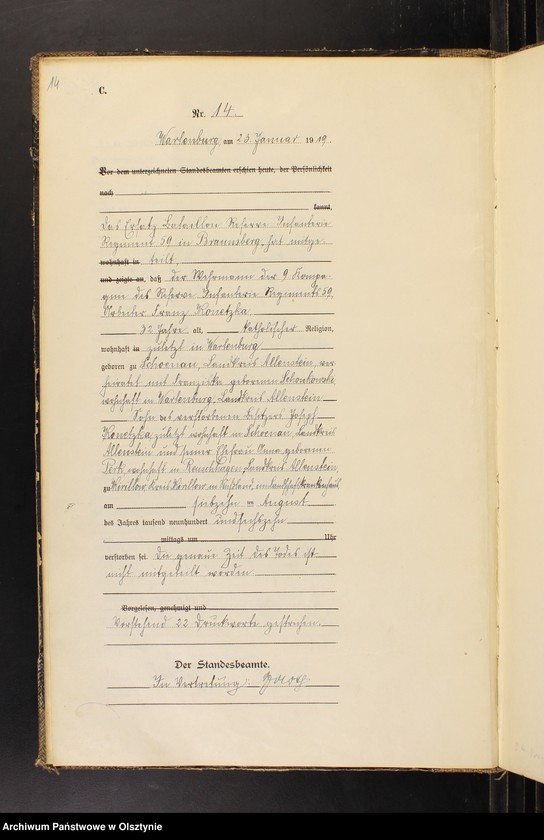 14
C.
Nr. 14.
Wartenburg am 23 Januar 1919.
Vor dem unterzeichneten Standesbeamten erschien heute, der Persönlichkeit
nach
kannt,
das Ersatz Bataillon Reserve Infanterie
Regiment 59 in Braunsberg, hat mitge-
wohnhaft in teilt,
und zeigte an, daß der Wehrmann der 9 Kompa-
gnie des Reserve Infanterie Regiments 59,
Arbeiter Franz Konetzka
32 Jahre alt, katholischer Religion,
wohnhaft in zuletzt in Wartenburg
geboren zu Schoenau, Landkreis Allenstein, ver-
heiratet mit Franziska geborenen
wohnhaft in Wartenburg, Landkreis Allenstein
Sohn des verstorbenen Besitzers Joseph
Konetzka, zuletzt wohnhaft in Schoenau, Landkreis
Allenstein und seiner Ehefrau Anna geborenen
wohnhaft in Landkreis Allenstein,
zu Kreis in Rußland, im
am siebzehn ten August
des Jahres tausend neunhundert und sechszehn
mittags um Uhr
verstorben sei. Die genaue Zeit des Todes ist
nicht mitgeteilt worden
Vorgelesen, genehmigt und
Vorstehend 22 Druckworte gestrichen.
Der Standesbeamte.
In Vertretung:
Archiwum Państwowe w Olsztynie